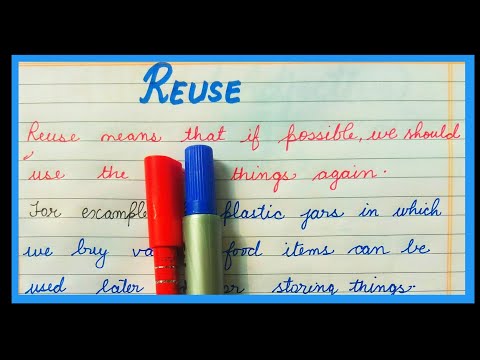 REUSE
Reuse means that if possible, we should
use the things again.
For example plastic jars in which
we buy va food items can be
used later storing things.